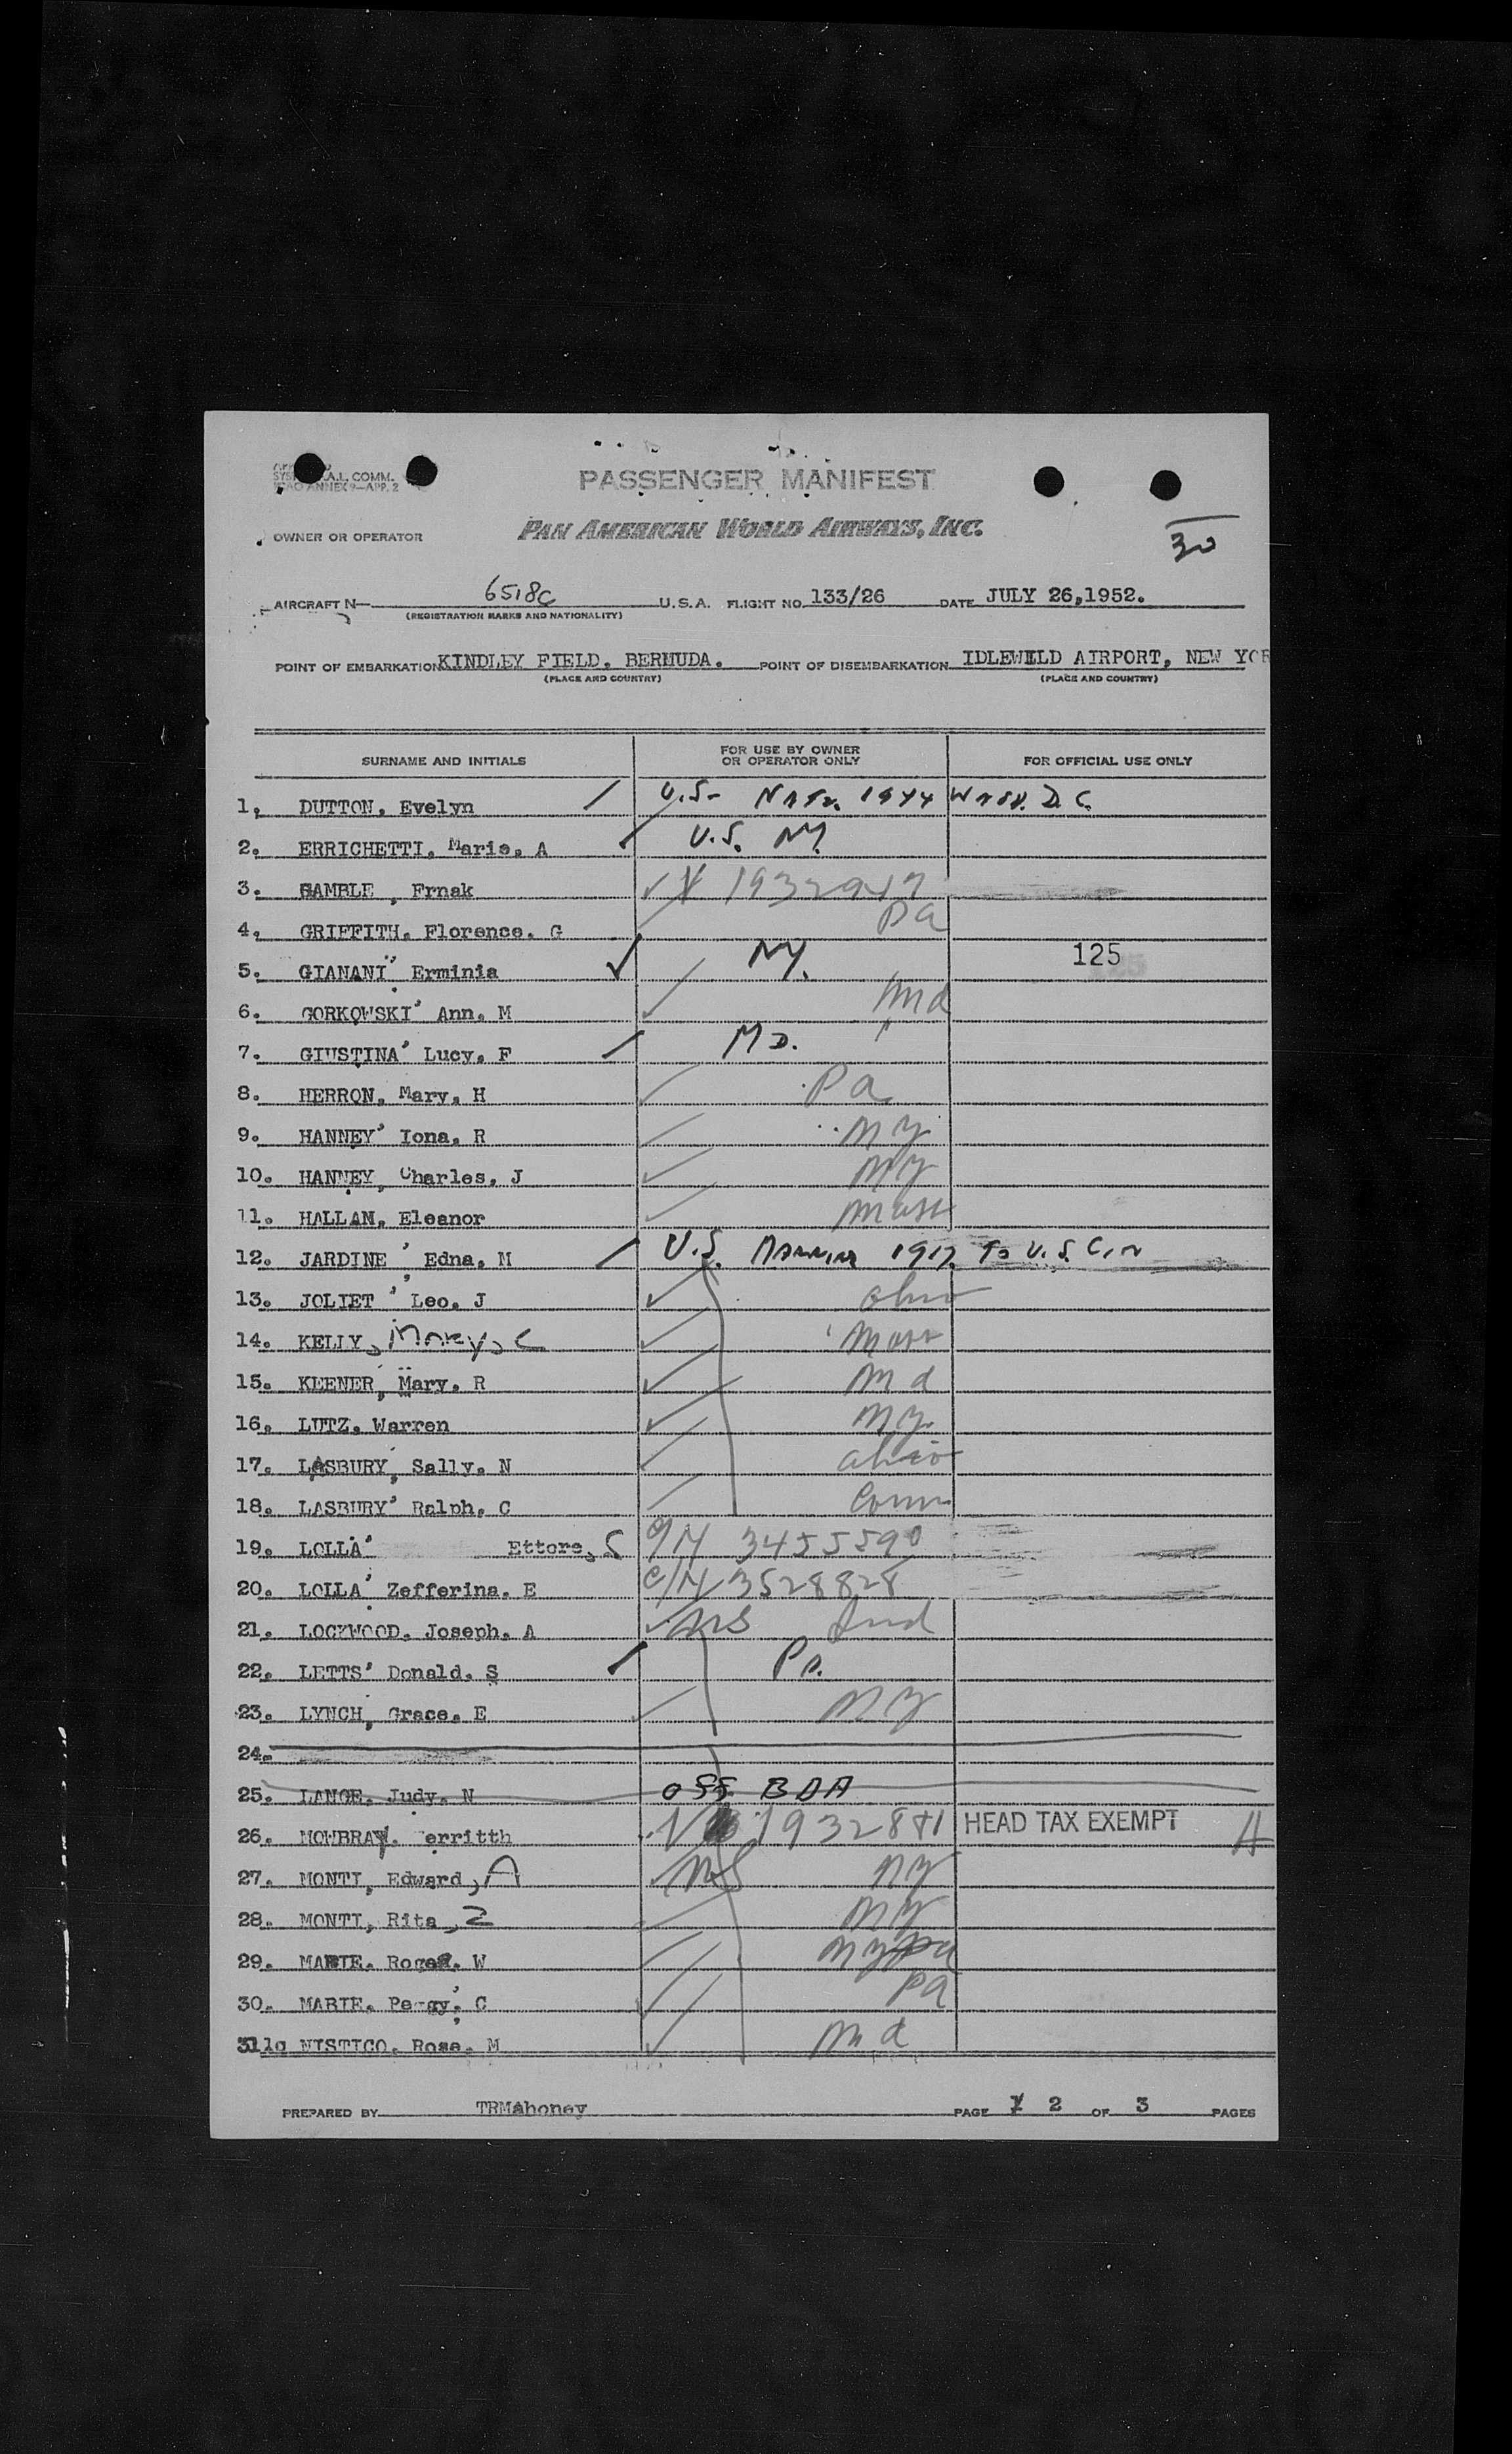 A.L. COMM.
ANNEX 9—APP. 2
PASSENGER MANIFEST
OWNER OR OPERATOR PAN AMERICAN WORLD AIRWAYS, INC.
30
AIRCRAFT N— 6518C U.S.A. FLIGHT NO. 133/26 DATE JULY 26,1952.
(REGISTRATION MARKS AND NATIONALITY)
POINT OF EMBARKATION KINDLEY FIELD. BERMUDA. POINT OF DISEMBARKATION IDLEWILD AIRPORT, NEW YOR
(PLACE AND COUNTRY) (PLACE AND COUNTRY)
SURNAME AND INITIALS FOR USE BY OWNER OR OPERATOR ONLY FOR OFFICIAL USE ONLY
1. DUTTON, Evelyn U.S- NATZ. 1944 WASH. D.C.
2. ERRICHETTI. Marie. A U.S. NY.
3. GAMBLE, Frnak 1932947
4. GRIFFITH. Florence. G Pa
5. GIANANI" Erminia NY. 125
6. GORKOWSKI' Ann. M Md
7. GIUSTINA' Lucy. F MD.
8. HERRON, Mary. H Pa
9. HANNEY' Iona. R NY
10. HANNEY, Charles, J NY
11. HALLAN, Eleanor Mass
12. JARDINE ' Edna. M U.S. MARRIAGE 1917. To U.S. Cin
13. JOLIET ' Leo. J Ohio
14. KELLY, Mary, C Mass
15. KEENER, Mary. R Md
16. LUTZ. Warren NY.
17. LASBURY, Sally. N Ohio
18. LASBURY' Ralph. C Conn
19. LOLLA' Ettore, S C/N 3455590
20. LOLLA' Zefferina. E C/N 3528828
21. LOCKWOOD. Joseph. A US Ind
22. LETTS' Donald. S Pa.
23. LYNCH, Grace. E NY
24.
25. LANGE. Judy. N off BDA
26. MOWBRAY. erritth 1932881 HEAD TAX EXEMPT A
27. MONTI, Edward, A US NY
28. MONTI, Rita, Z NY
29. MARTE. Roger. W NY Pa
30. MARTE. Peggy. C Pa
31 NISTICO. Rose. M Md
PREPARED BY TRMahoney PAGE 2 OF 3 PAGES